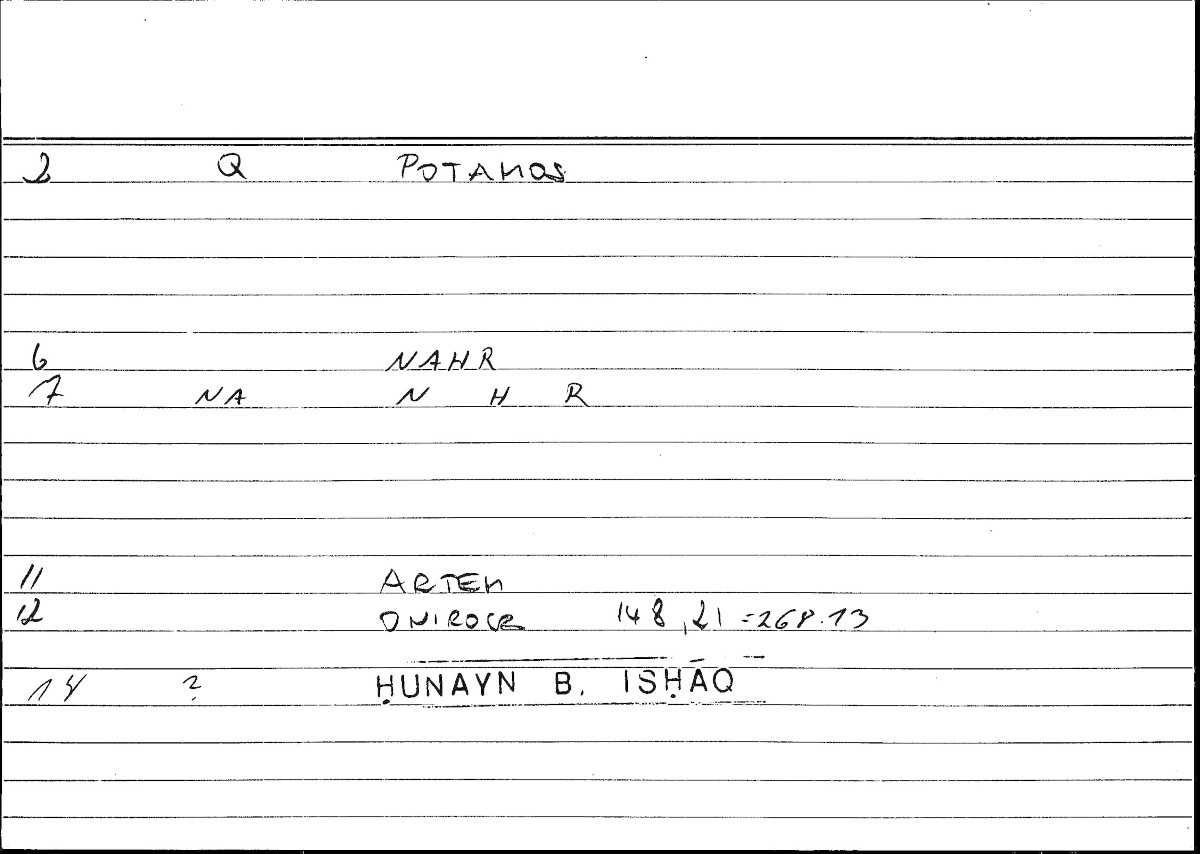 2 Q POTAMOS
6 NAHR
7 NA N H R
11 ARTEM
12 ONIROCR 148,21 = 268.13
14 ? ḤUNAYN B. ISḤĀQ